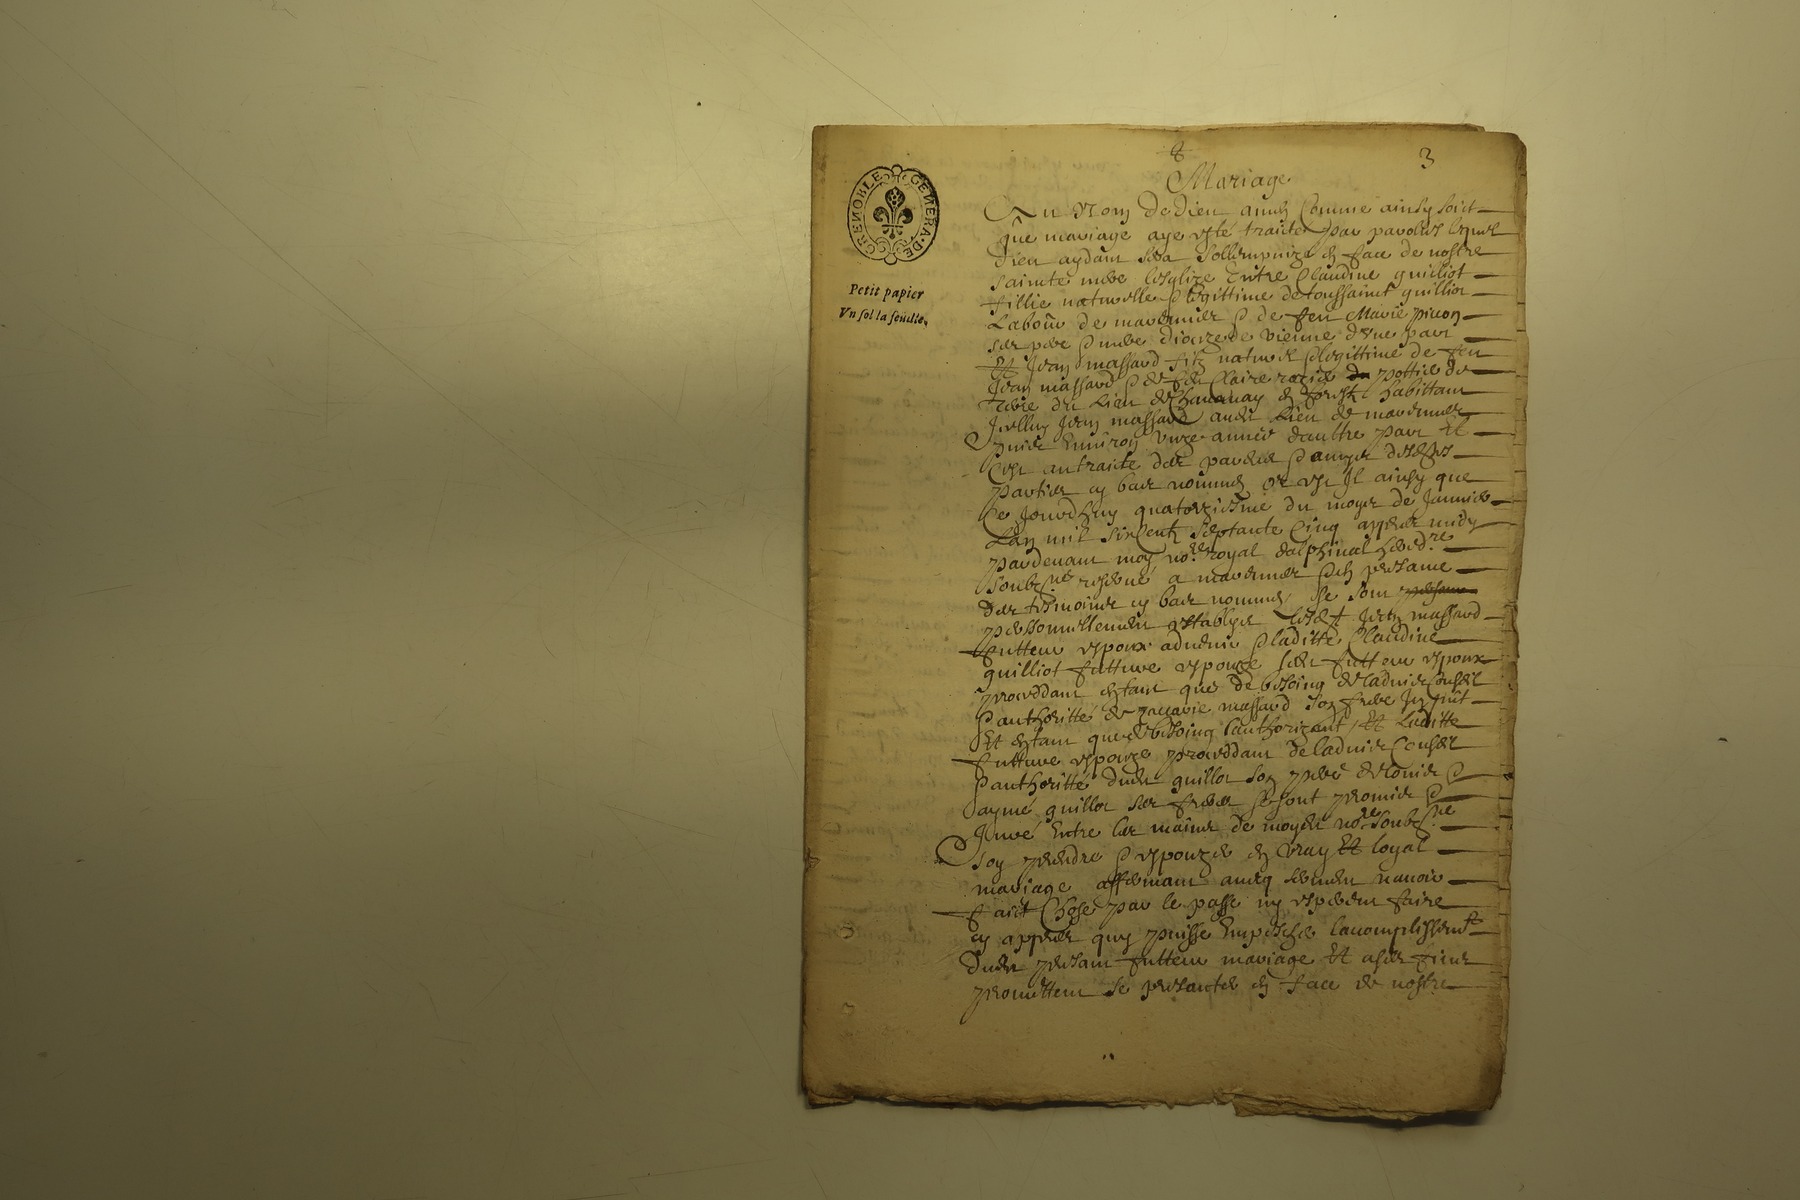 8
3
Mariage
GENERA·DE GRENOBLE
Petit papier
Vn sol la feüille.
Au Nom de Dieu amen Comme ainsy soict
que mariage aye esté traicté par parolles
Dieu aydant sera sollempnizé en face de nostre
saincte mere lesglize Entre Claudine guilliot
fillie naturelle & legittime de toussainct guilliot
Labour de & de feu Marie
ses pere & mere diocize de vienne dune part
Et Jean massard filz naturel & legittime de feu
Jean massard & de Claire pottier de
terre du Lieu de en habittant
Icelluy Jean massard audit Lieu de
puis Environ unze années daultre part Et
en traicté des & amys desdites
parties cy bas nommés or est Il ainsy que
Ce Jourdhuy quatorziesme du moys de Janvier
Lan mil six Centz septante Cinq appres midy
pardevant moy no.re royal dalphinal
soubz.né a & en presance
des tesmoins cy bas nommés se sont
personnellement establys Jean massard
futteur espoux advenir & laditte Claudine
guilliot futture espouze futteur espoux
proceddant entant que de besoing de ladvis Conseil
& authoritté de massard son frere
Et entant que de besoing lauthorizant, Et Laditte
futture espouze proceddant de ladvis Conseil
& authoritté dudit guilliot son pere &
aymé guilliot ses freres se sont promis &
Juré Entre les mains de moydit no.re soubz.né
soy prendre & espouzer en vray Et loyal
mariage affermant avecq serment navoir
faict Chose par le passé ny esperent faire
cy appres quy puisse Empescher lacomplissem.t
dudit presant futteur mariage Et a ces fins
promettent se presanter en face de nostre